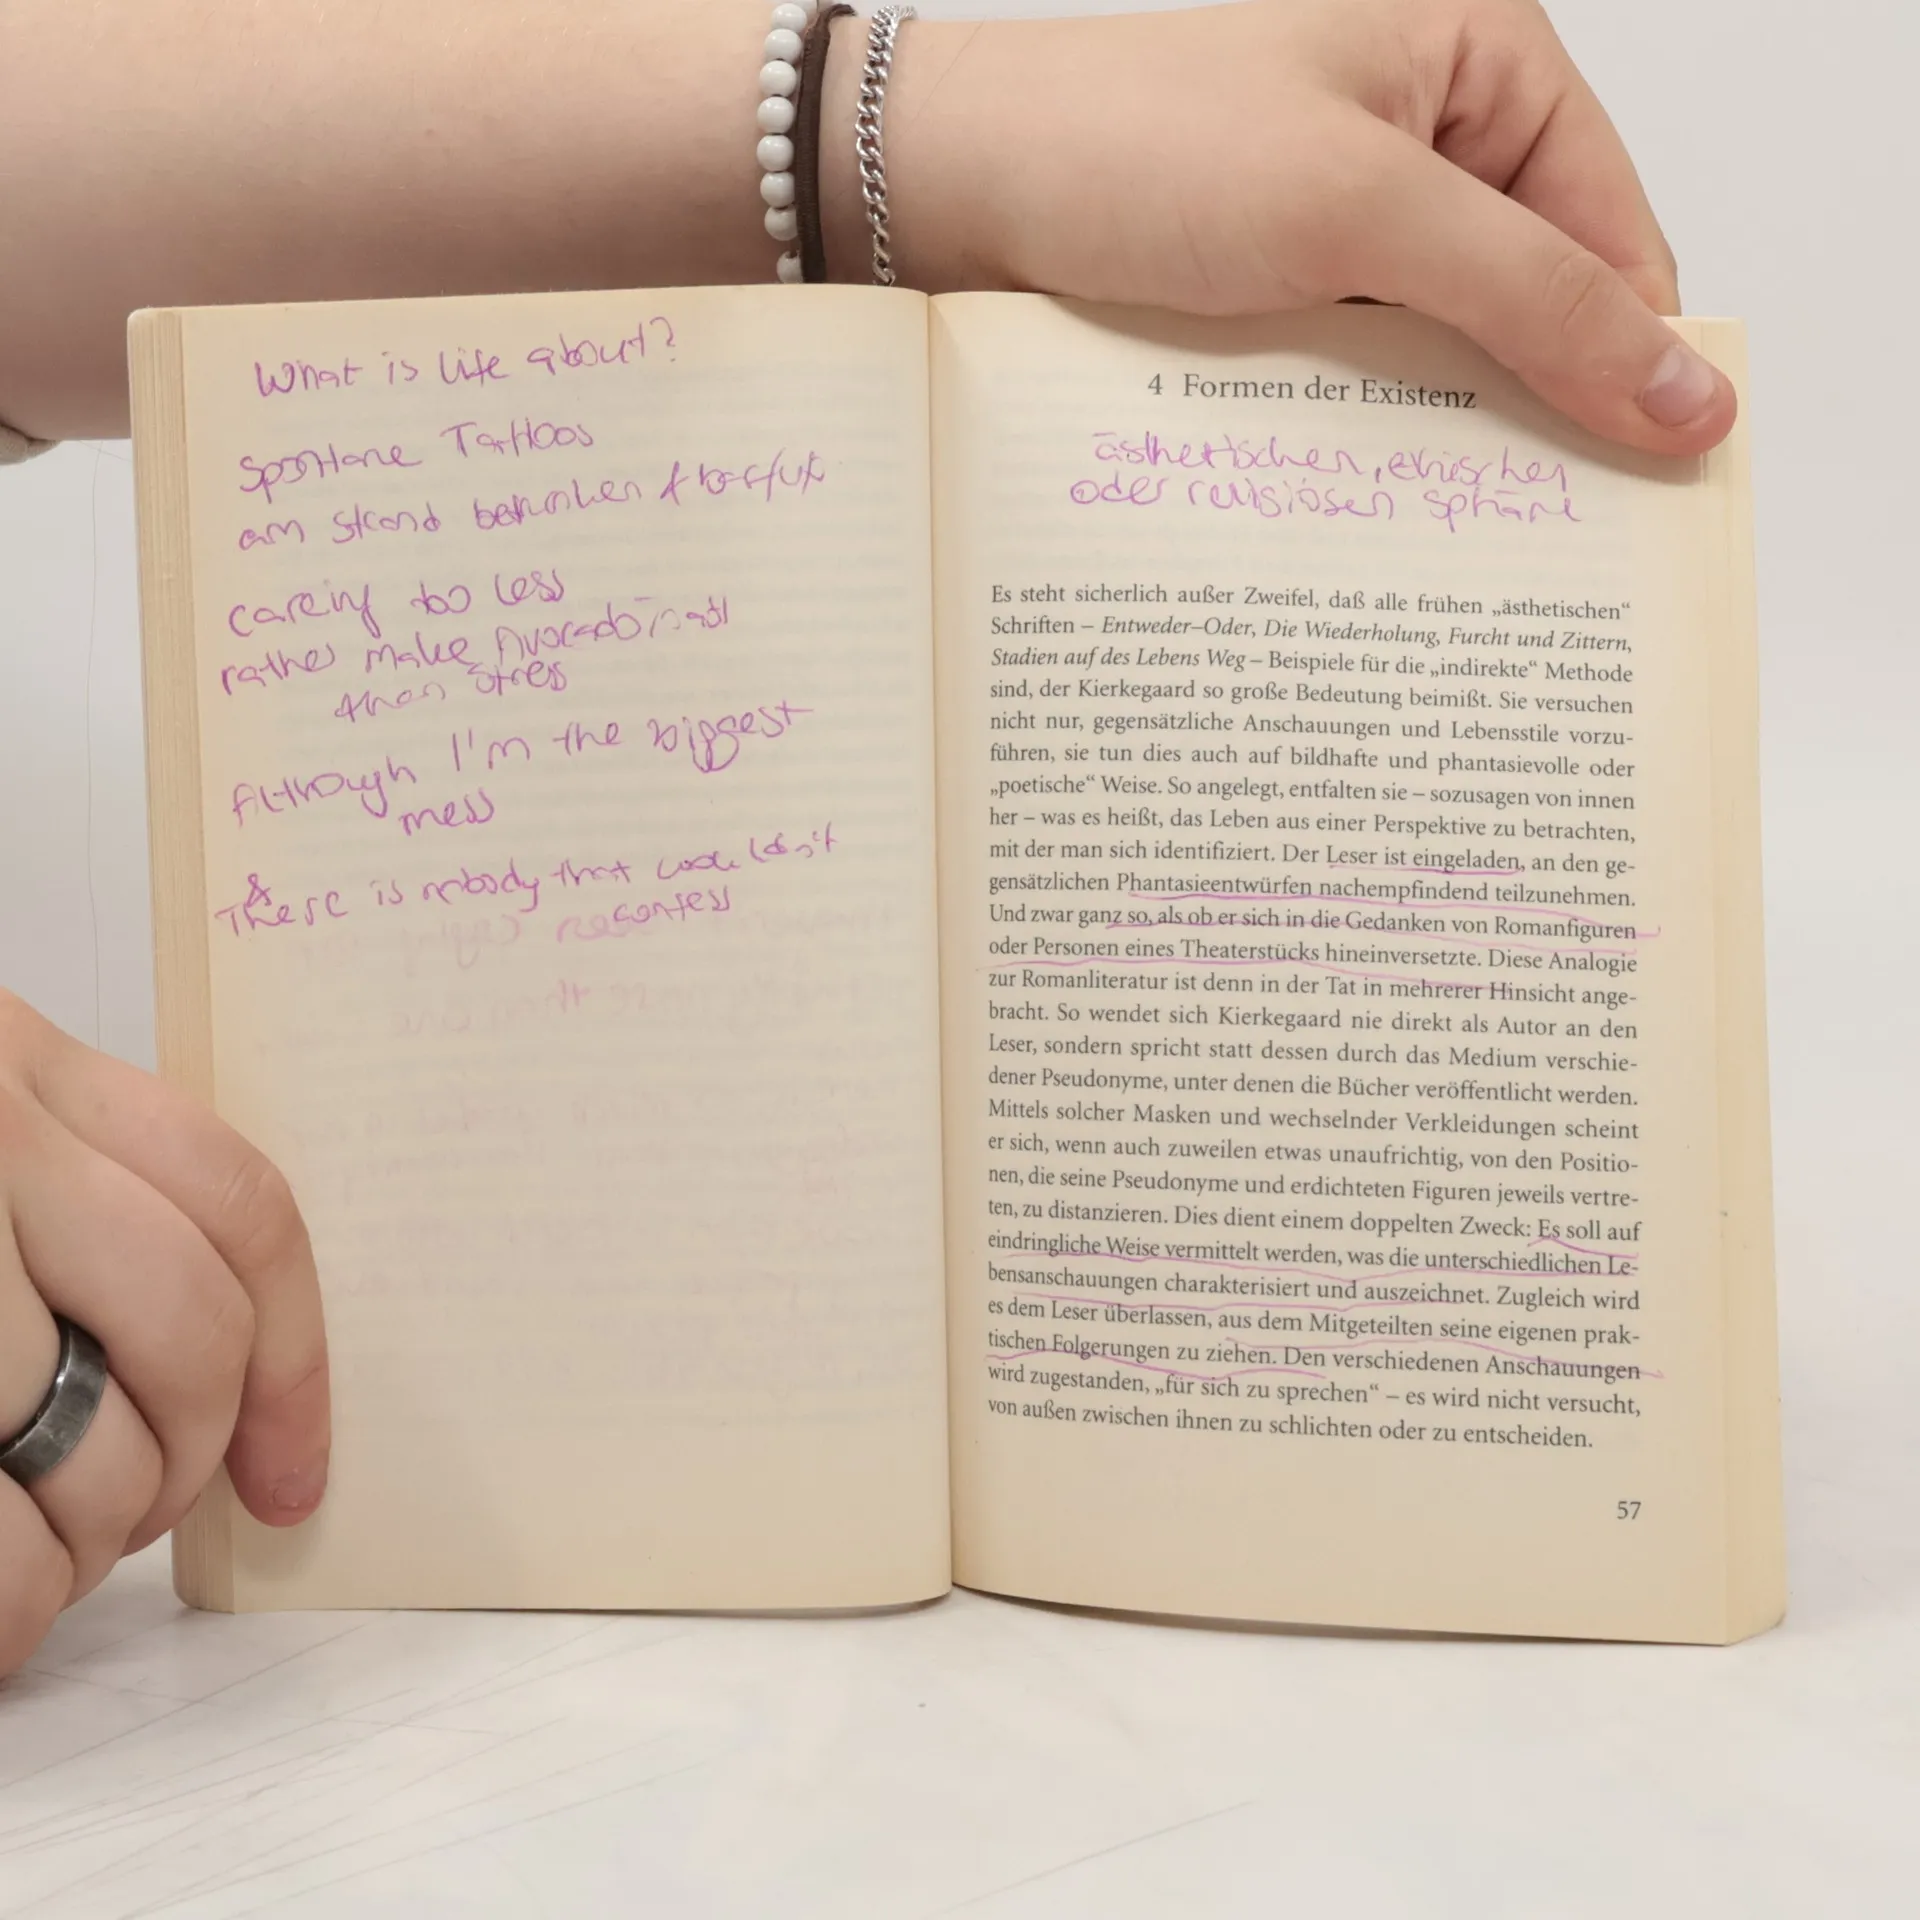 What is life about?
Spontane Tattoos
am Strand betrunken & barfuß
careing too less
rather make Avocadotoast
than stress
Although I'm the biggest
mess
&
There is nobody that
confess
4 Formen der Existenz
ästhetischen, ethischen
oder religiösen Sphäre
Es steht sicherlich außer Zweifel, daß alle frühen „ästhetischen“
Schriften – Entweder–Oder, Die Wiederholung, Furcht und Zittern,
Stadien auf des Lebens Weg – Beispiele für die „indirekte“ Methode
sind, der Kierkegaard so große Bedeutung beimißt. Sie versuchen
nicht nur, gegensätzliche Anschauungen und Lebensstile vorzu-
führen, sie tun dies auch auf bildhafte und phantasievolle oder
„poetische“ Weise. So angelegt, entfalten sie – sozusagen von innen
her – was es heißt, das Leben aus einer Perspektive zu betrachten,
mit der man sich identifiziert. Der Leser ist eingeladen, an den ge-
gensätzlichen Phantasieentwürfen nachempfindend teilzunehmen.
Und zwar ganz so, als ob er sich in die Gedanken von Romanfiguren
oder Personen eines Theaterstücks hineinversetzte. Diese Analogie
zur Romanliteratur ist denn in der Tat in mehrerer Hinsicht ange-
bracht. So wendet sich Kierkegaard nie direkt als Autor an den
Leser, sondern spricht statt dessen durch das Medium verschie-
dener Pseudonyme, unter denen die Bücher veröffentlicht werden.
Mittels solcher Masken und wechselnder Verkleidungen scheint
er sich, wenn auch zuweilen etwas unaufrichtig, von den Positio-
nen, die seine Pseudonyme und erdichteten Figuren jeweils vertre-
ten, zu distanzieren. Dies dient einem doppelten Zweck: Es soll auf
eindringliche Weise vermittelt werden, was die unterschiedlichen Le-
bensanschauungen charakterisiert und auszeichnet. Zugleich wird
es dem Leser überlassen, aus dem Mitgeteilten seine eigenen prak-
tischen Folgerungen zu ziehen. Den verschiedenen Anschauungen
wird zugestanden, „für sich zu sprechen“ – es wird nicht versucht,
von außen zwischen ihnen zu schlichten oder zu entscheiden.
57